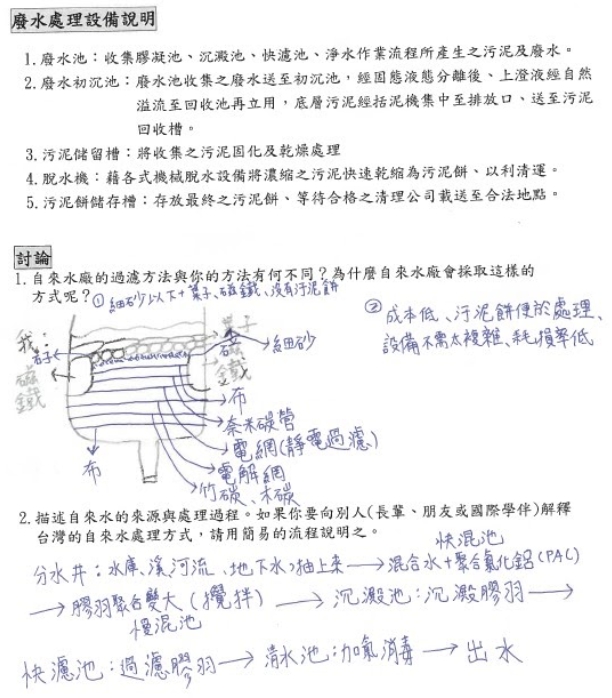 廢水處理設備說明
1.廢水池：收集膠凝池、沉澱池、快濾池、淨水作業流程所產生之污泥及廢水。
2.廢水初沉池：廢水池收集之廢水送至初沉池，經固態液態分離後、上澄液經自然
溢流至回收池再立用，底層污泥經括泥機集中至排放口、送至污泥
回收槽。
3.污泥儲留槽：將收集之污泥固化及乾燥處理
4.脫水機：藉各式機械脫水設備將濃縮之污泥快速乾縮為污泥餅、以利清運。
5.污泥餅儲存槽：存放最終之污泥餅、等待合格之清理公司載送至合法地點。
討論
1.自來水廠的過濾方法與你的方法有何不同？為什麼自來水廠會採取這樣的
方式呢？①細砂以下+葉子、磁鐵、沒有污泥餅
②成本低、汙泥餅便於處理、
設備不需太複雜、耗損率低
我：
葉子
石子
磁鐵
細砂
磁鐵
布
奈米碳管
電網(靜電過濾)
電解網
竹碳、木碳
布
2.描述自來水的來源與處理過程。如果你要向別人(長輩、朋友或國際學伴)解釋
台灣的自來水處理方式，請用簡易的流程說明之。
快混池
分水井：水庫、溪河流、地下水抽上來→混合水+聚合氯化鋁(PAC)
→膠羽聚合變大(攪拌)→沉澱池：沉澱膠羽→
慢混池
快濾池：過濾膠羽→清水池：加氯消毒→出水